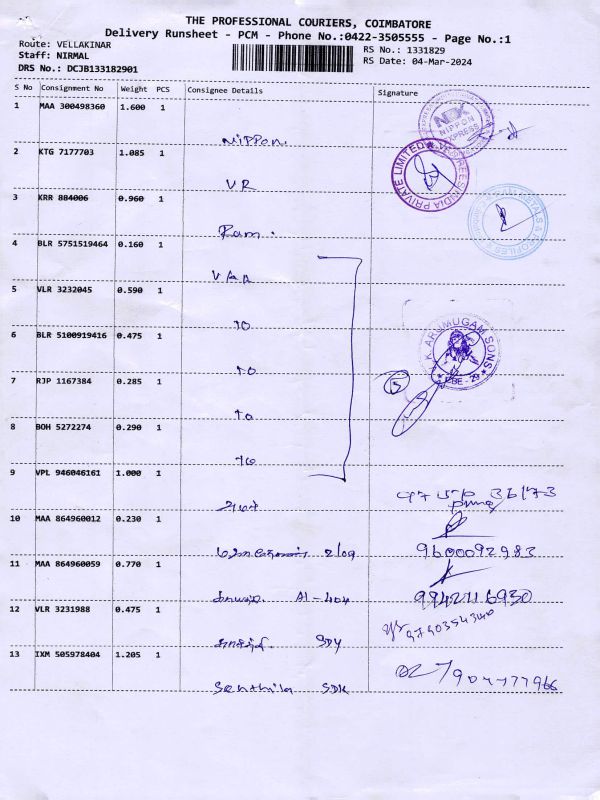 THE PROFESSIONAL COURIERS, COIMBATORE
Delivery Runsheet - PCM - Phone No.:0422-3505555 - Page No.:1
Route: VELLAKINAR
RS No.: 1331829
Staff: NIRMAL
RS Date: 04-Mar-2024
DRS No.: DCJB133182901
S No Consignment No Weight PCS Consignee Details Signature
1 MAA 300498360 1.600 1
NIPPON EXPRESS
Nippon.
2 KTG 7177703 1.085 1
PRIVATE LIMITED
VR
3 KRR 884006 0.960 1
Ram.
4 BLR 5751519464 0.160 1
5 VLR 3232045 0.590 1
TO
V.K. ARUMUGAM SONS
CBE - 29
6 BLR 5100919416 0.475 1
TO
7 RJP 1167384 0.285 1
5
TO
8 BOH 5272274 0.290 1
TO
9 VPL 946046161 1.000 1
10 MAA 864960012 0.230 1
9600092983
11 MAA 864960059 0.770 1
A1-404 9942116930
12 VLR 3231988 0.475 1
9790354340
SDY
13 IXM 505978404 1.205 1
7904777966
Senthila SDK